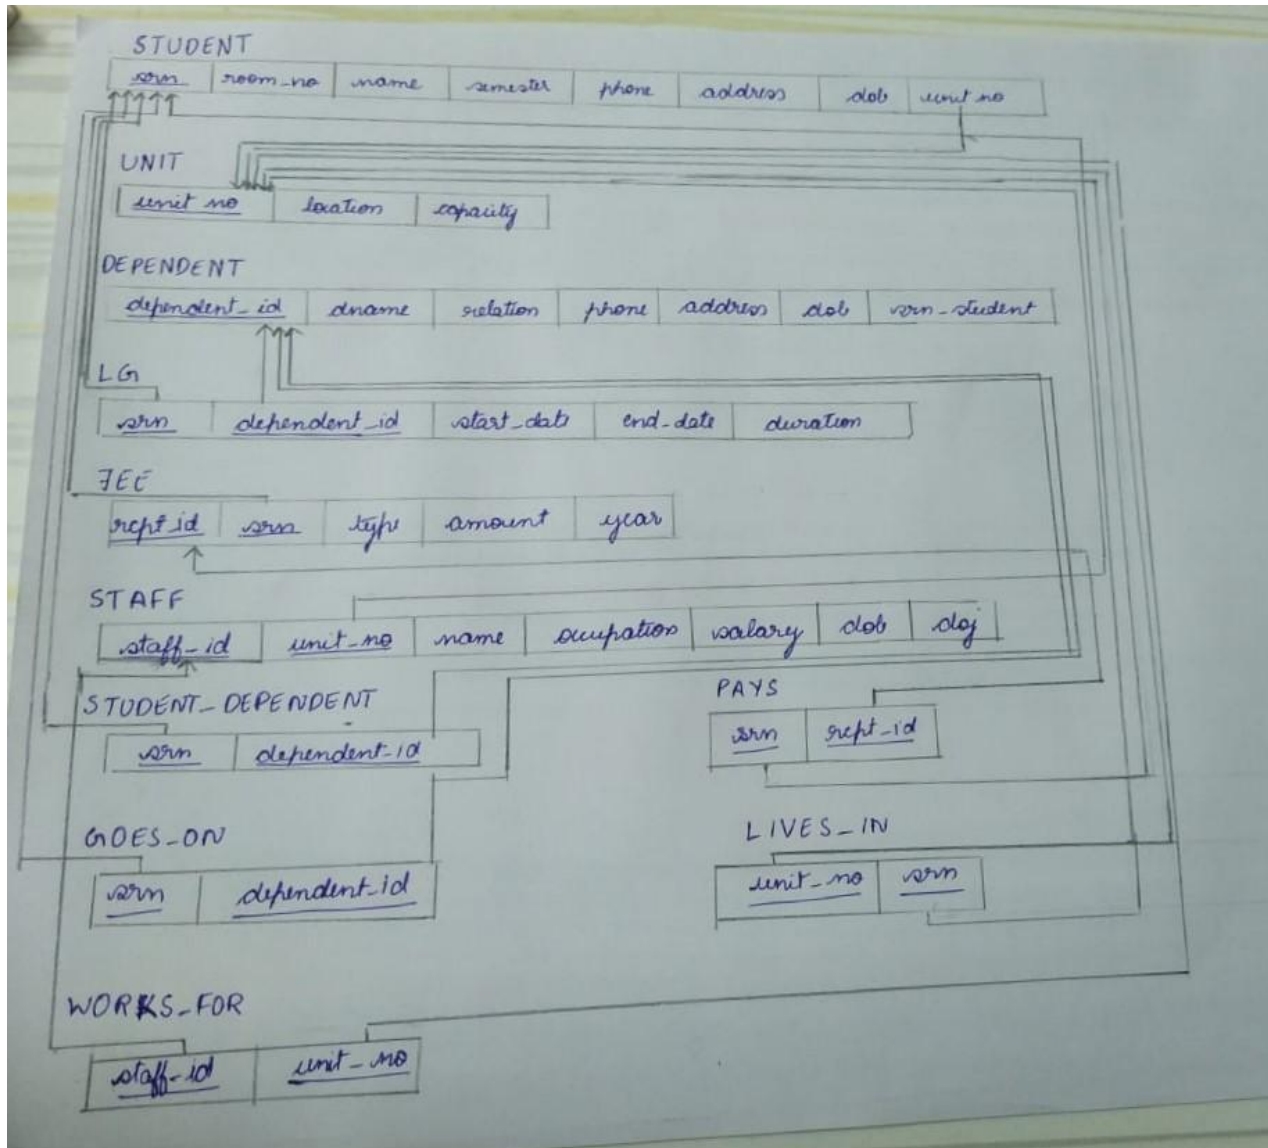 STUDENT
srn room_no name semester phone address dob unit no
UNIT
unit no location capacity
DEPENDENT
dependent_id dname relation phone address dob srn_student
LG
srn dependent_id start_date end_date duration
FEE
rcpt id srn type amount year
STAFF
staff_id unit_no name occupation salary dob doj
STUDENT_DEPENDENT
srn dependent_id
PAYS
srn rcpt_id
GOES_ON
srn dependent_id
LIVES_IN
unit_no srn
WORKS_FOR
staff_id unit_no